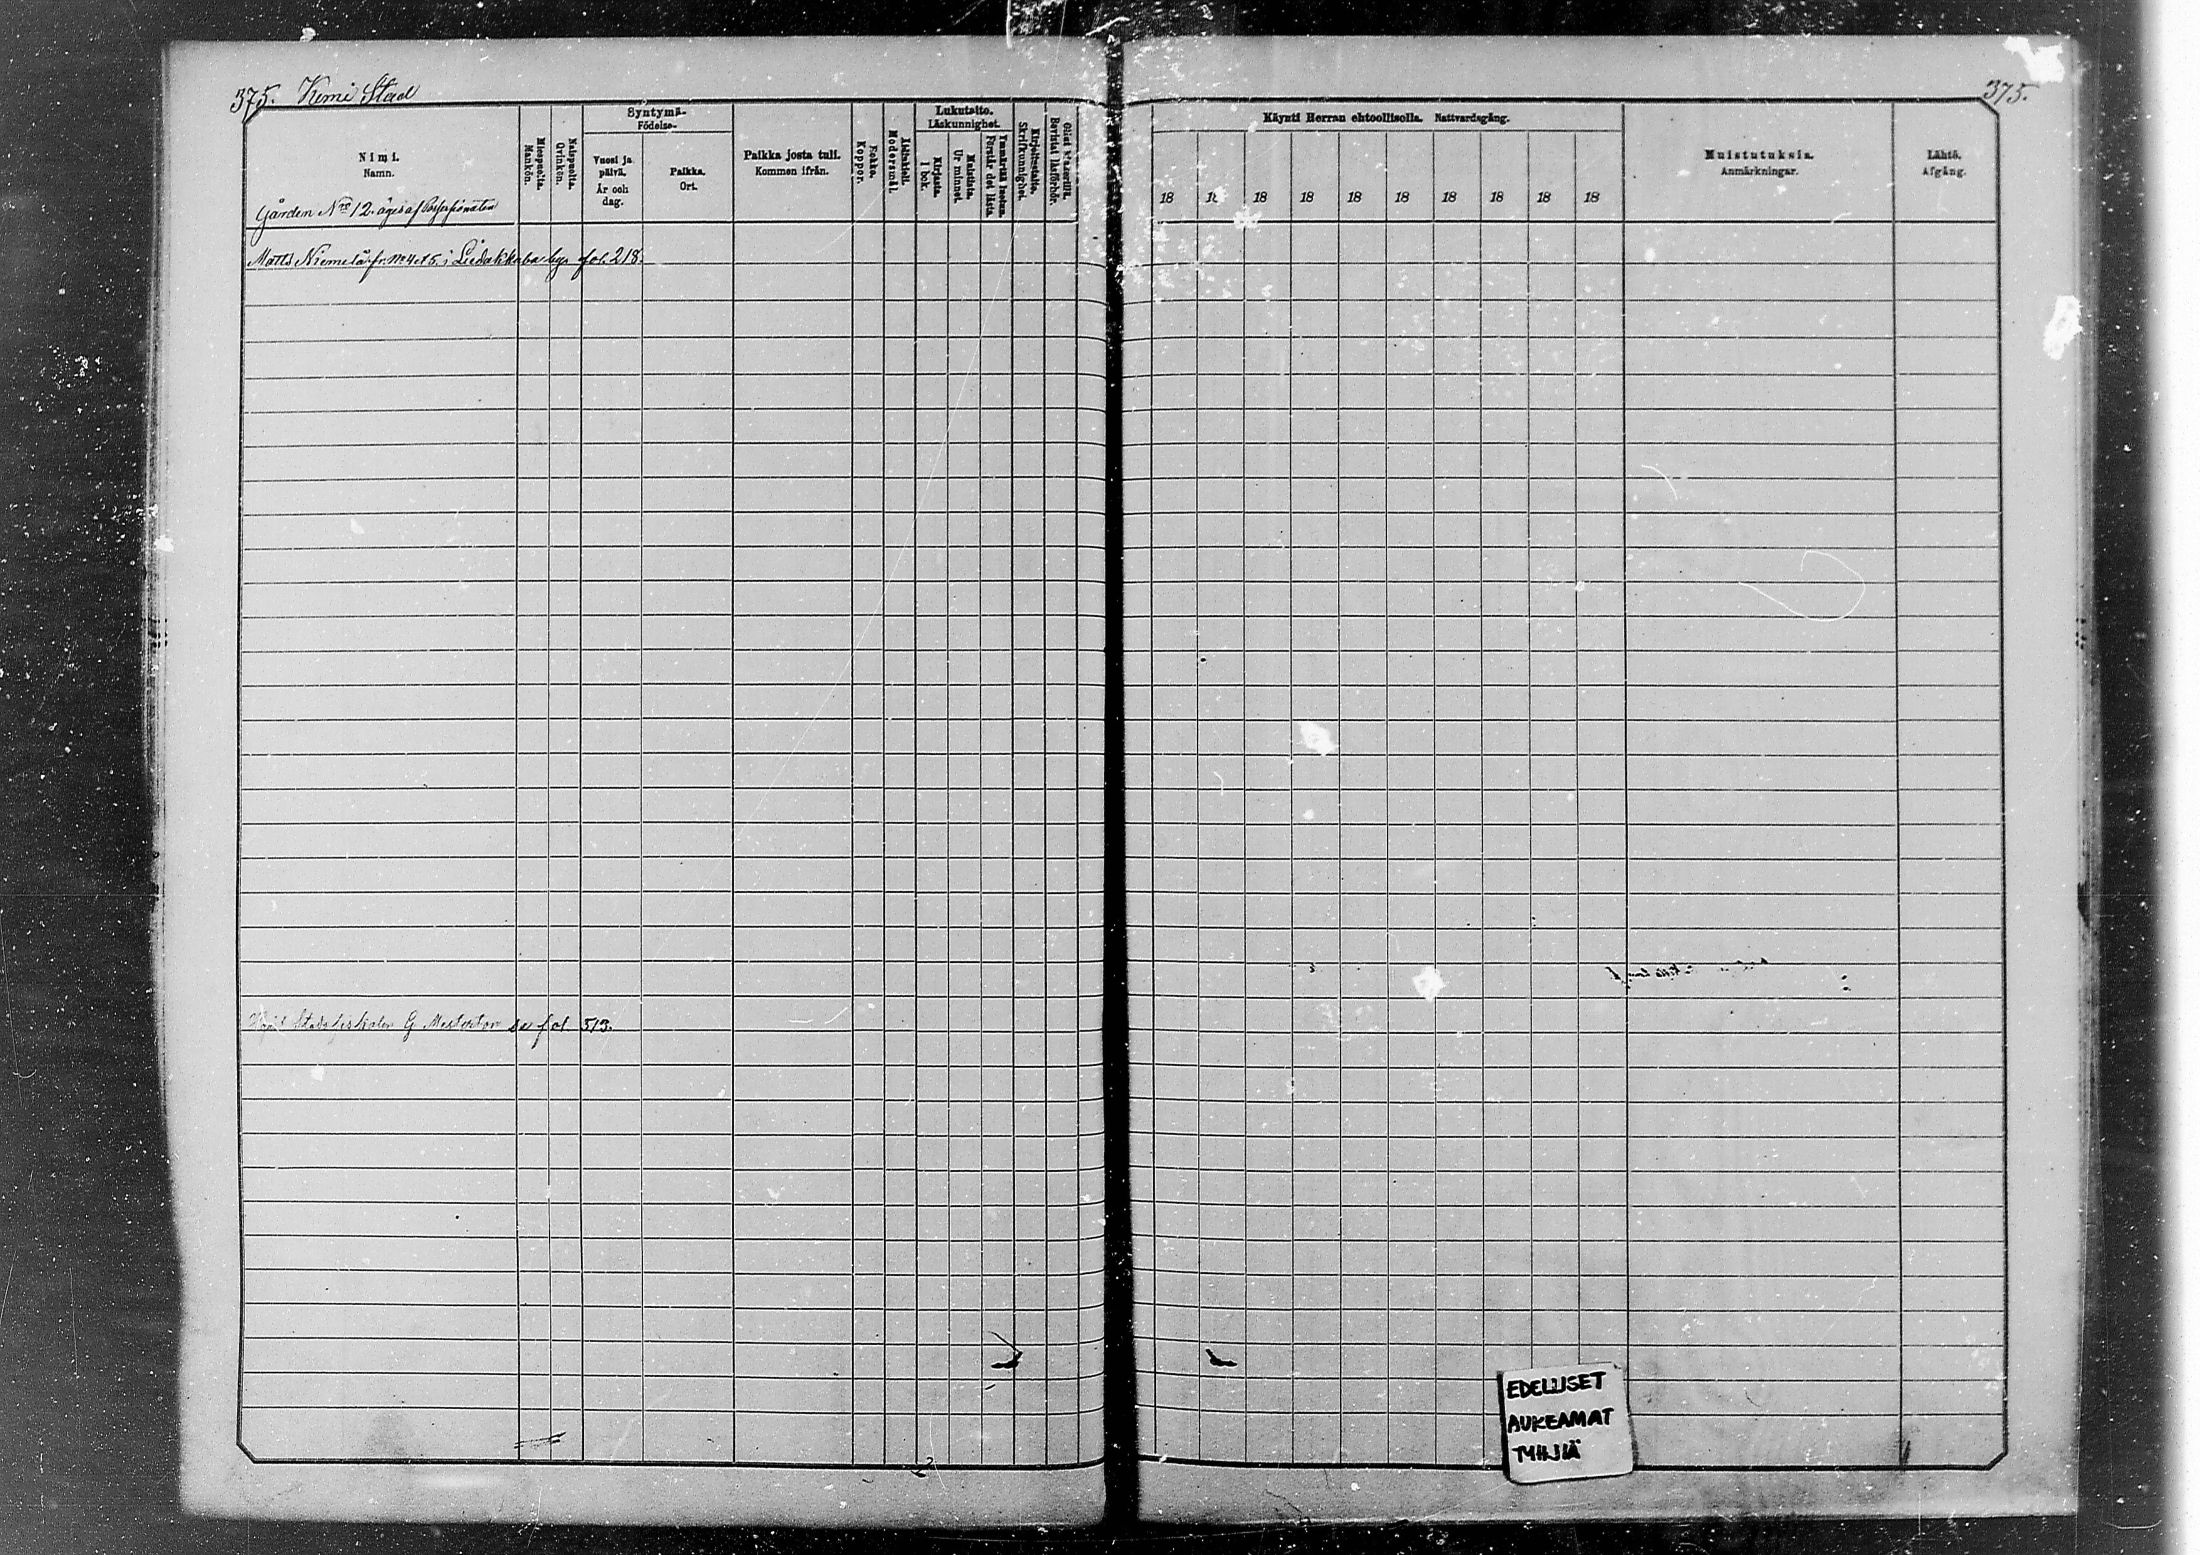 375. Kemi Stad
375.
Nimi.
Namn.
Miespuolta.
Mankön.
Naispuolta.
Qvinkön.
Syntymä-
Födelse-
Vuosi ja
päivä.
År och
dag.
Paikka.
Ort.
Paikka josta tuli.
Kommen ifrån.
Rokko.
Koppor.
Äidinkieli.
Modersmål.
Lukutaito.
Läskunnighet.
Kirjasta.
I bok.
Muistista.
Ur minnet.
Ymmärtää luetun.
Förstår det lästa
Kirjoitustaito.
Skrifkunnighet.
Bevistat läsförhör.
Käynti Herran ehtoollisella. Nattvardsgång.
18 18 18 18 18 18 18 18 18 18
Muistutuksia.
Anmärkningar.
Lähtö.
Afgång.
Gården No 12. äges af
Matts Niemelä fr. No 4 et 5. i Liedakkala by. fol. 218.
Stadsfiskalen G Mesterton se fol 513.
EDELLISET
AUKEAMAT
TYHJIÄ